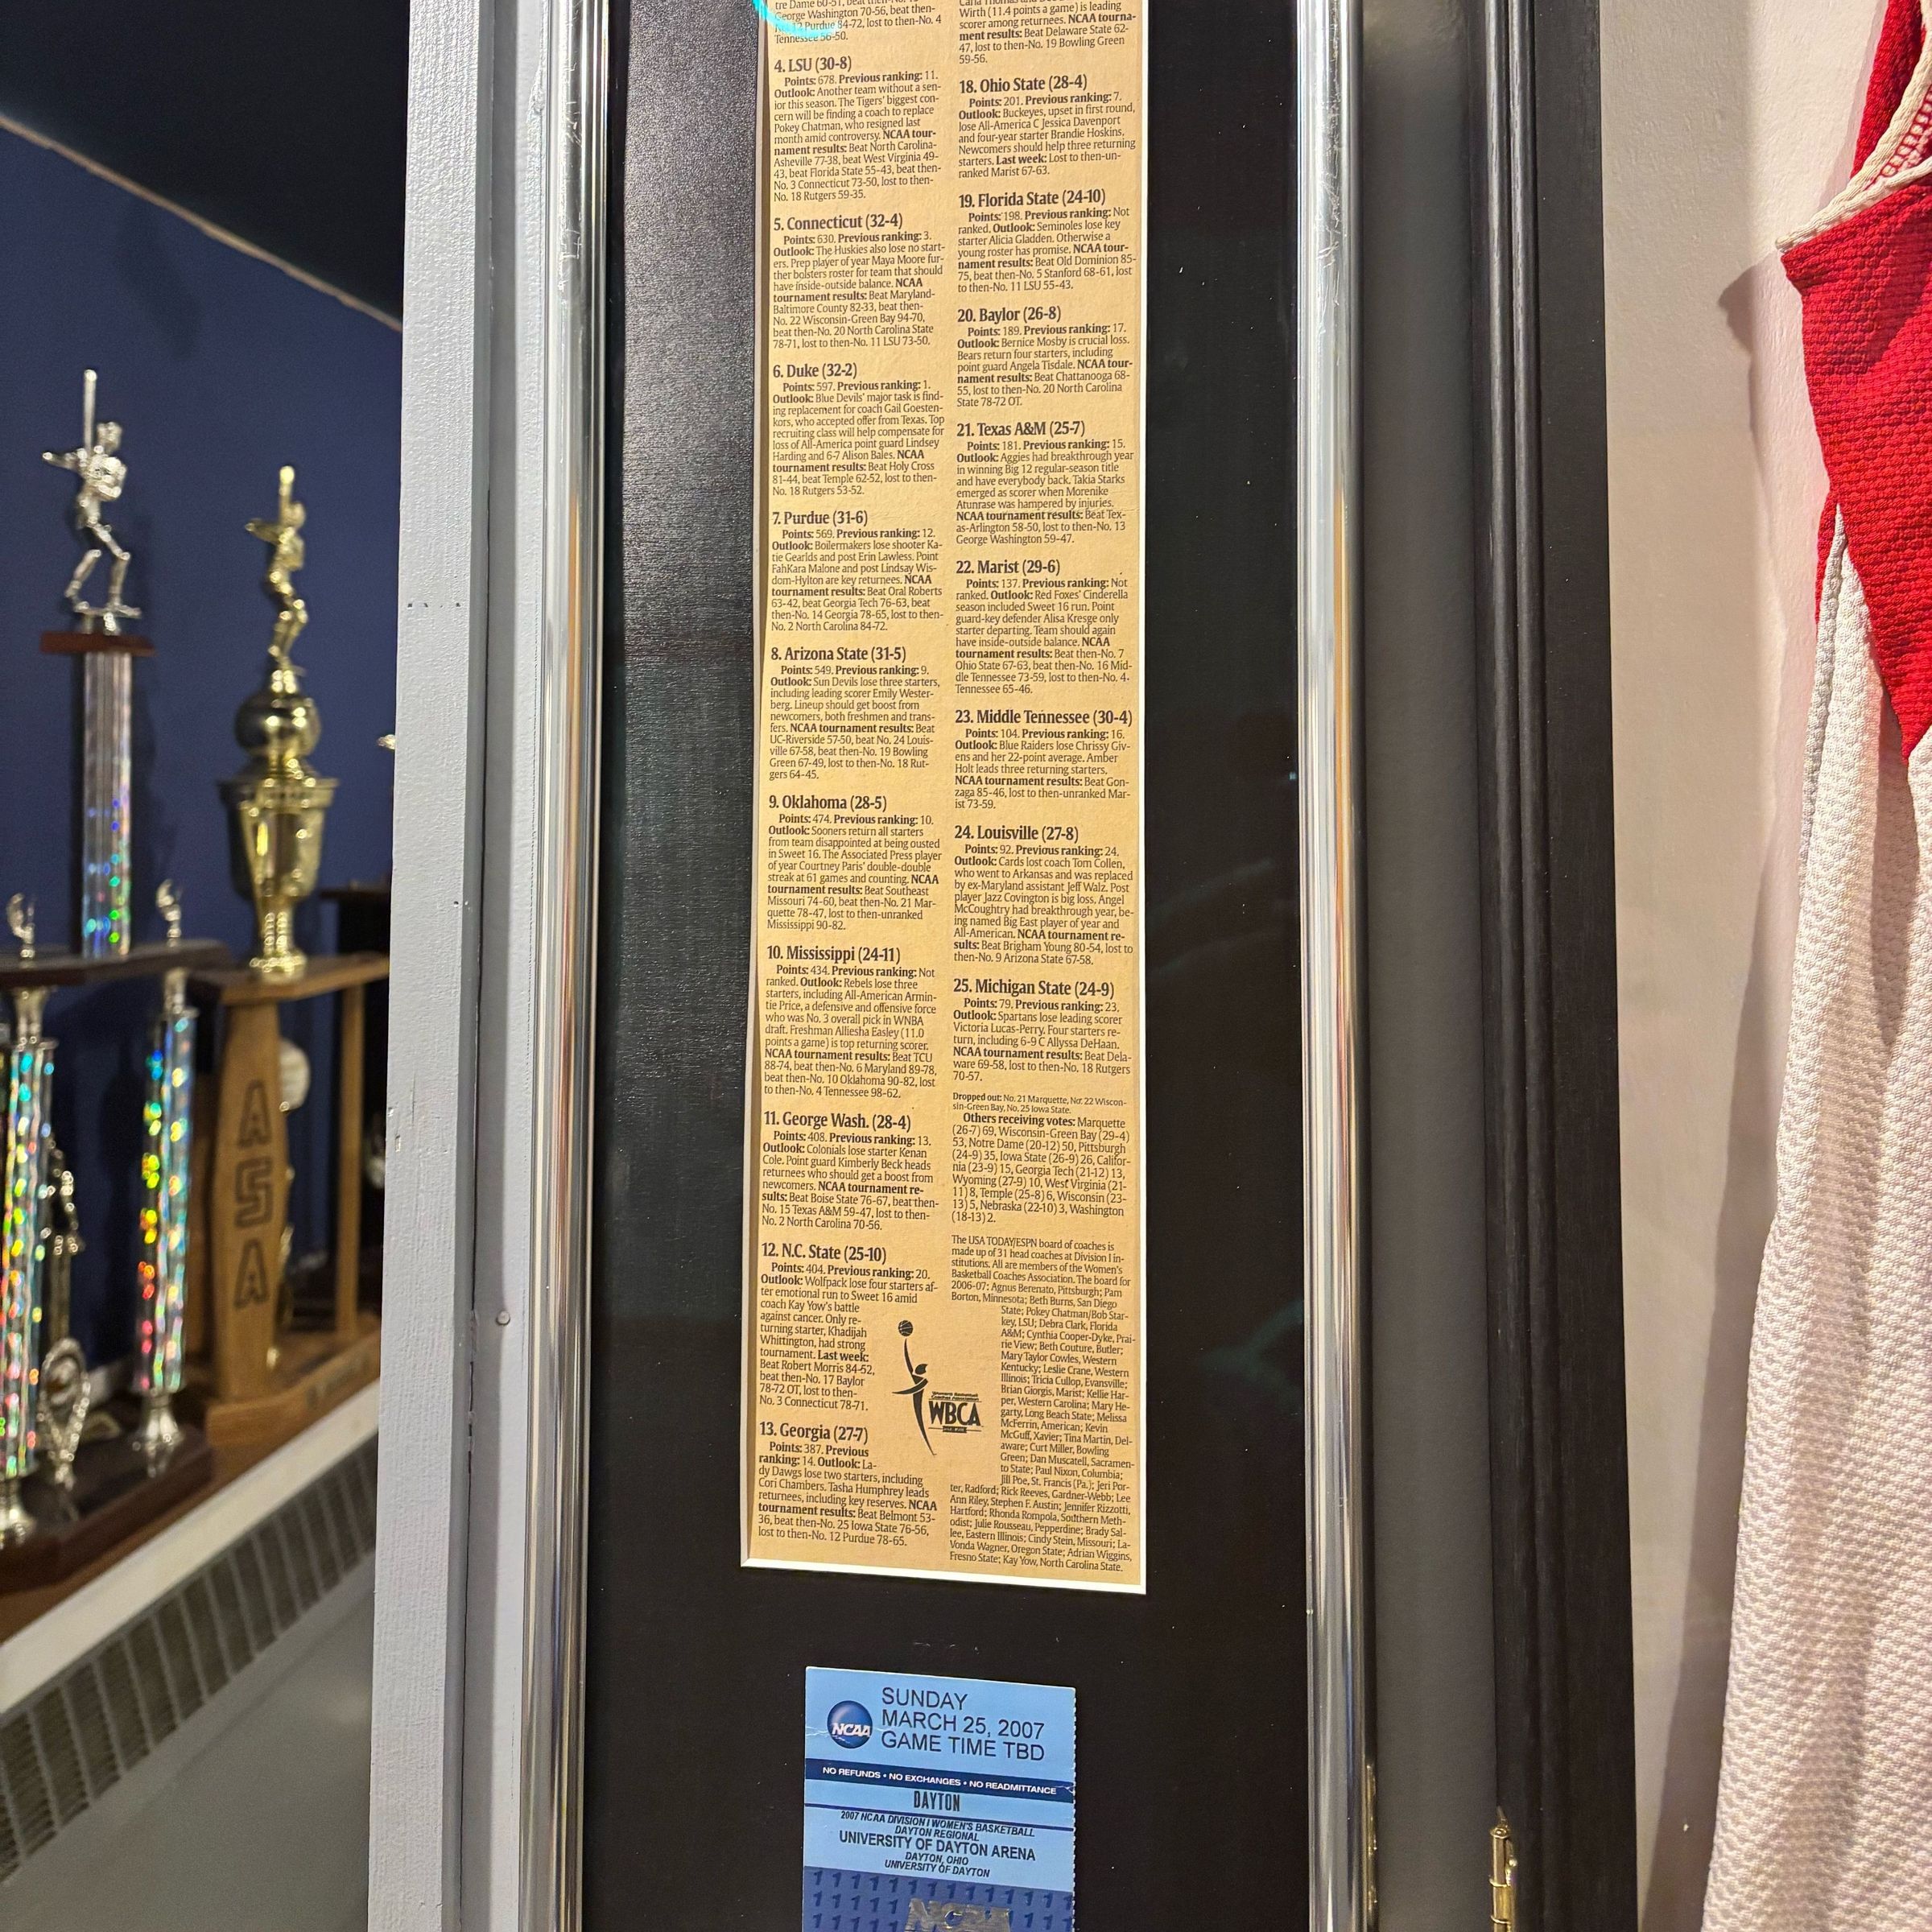 tre Dame 60-51, beat then-No. 13
George Washington 70-56, beat then-
No. 12 Purdue 84-72, lost to then-No. 4
Tennessee 56-50.
4. LSU (30-8)
Points: 678. Previous ranking: 11.
Outlook: Another team without a sen-
ior this season. The Tigers' biggest con-
cern will be finding a coach to replace
Pokey Chatman, who resigned last
month amid controversy. NCAA tour-
nament results: Beat North Carolina-
Asheville 77-38, beat West Virginia 49-
43, beat Florida State 55-43, beat then-
No. 3 Connecticut 73-50, lost to then-
No. 18 Rutgers 59-35.
5. Connecticut (32-4)
Points: 630. Previous ranking: 3.
Outlook: The Huskies also lose no start-
ers. Prep player of year Maya Moore fur-
ther bolsters roster for team that should
have inside-outside balance. NCAA
tournament results: Beat Maryland-
Baltimore County 82-33, beat then-
No. 22 Wisconsin-Green Bay 94-70,
beat then-No. 20 North Carolina State
78-71, lost to then-No. 11 LSU 73-50.
6. Duke (32-2)
Points: 597. Previous ranking: 1.
Outlook: Blue Devils' major task is find-
ing replacement for coach Gail Goesten-
kors, who accepted offer from Texas. Top
recruiting class will help compensate for
loss of All-America point guard Lindsey
Harding and 6-7 Alison Bales. NCAA
tournament results: Beat Holy Cross
81-44, beat Temple 62-52, lost to then-
No. 18 Rutgers 53-52.
7. Purdue (31-6)
Points: 569. Previous ranking: 12.
Outlook: Boilermakers lose shooter Ka-
tie Gearlds and post Erin Lawless. Point
FahKara Malone and post Lindsay Wis-
dom-Hylton are key returnees. NCAA
tournament results: Beat Oral Roberts
63-42, beat Georgia Tech 76-63, beat
then-No. 14 Georgia 78-65, lost to then-
No. 2 North Carolina 84-72.
8. Arizona State (31-5)
Points: 549. Previous ranking: 9.
Outlook: Sun Devils lose three starters,
including leading scorer Emily Wester-
berg. Lineup should get boost from
newcomers, both freshmen and trans-
fers. NCAA tournament results: Beat
UC-Riverside 57-50, beat No. 24 Louis-
ville 67-58, beat then-No. 19 Bowling
Green 67-49, lost to then-No. 18 Rut-
gers 64-45.
9. Oklahoma (28-5)
Points: 474. Previous ranking: 10.
Outlook: Sooners return all starters
from team disappointed at being ousted
in Sweet 16. The Associated Press player
of year Courtney Paris' double-double
streak at 61 games and counting. NCAA
tournament results: Beat Southeast
Missouri 74-60, beat then-No. 21 Mar-
quette 78-47, lost to then-unranked
Mississippi 90-82.
10. Mississippi (24-11)
Points: 434. Previous ranking: Not
ranked. Outlook: Rebels lose three
starters, including All-American Armin-
tie Price, a defensive and offensive force
who was No. 3 overall pick in WNBA
draft. Freshman Alliesha Easley (11.0
points a game) is top returning scorer.
NCAA tournament results: Beat TCU
88-74, beat then-No. 6 Maryland 89-78,
beat then-No. 10 Oklahoma 90-82, lost
to then-No. 4 Tennessee 98-62.
11. George Wash. (28-4)
Points: 408. Previous ranking: 13.
Outlook: Colonials lose starter Kenan
Cole. Point guard Kimberly Beck heads
returnees who should get a boost from
newcomers. NCAA tournament re-
sults: Beat Boise State 76-67, beat then-
No. 15 Texas A&M 59-47, lost to then-
No. 2 North Carolina 70-56.
12. N.C. State (25-10)
Points: 404. Previous ranking: 20.
Outlook: Wolfpack lose four starters af-
ter emotional run to Sweet 16 amid
coach Kay Yow's battle
against cancer. Only re-
turning starter, Khadijah
Whittington, had strong
tournament. Last week:
Beat Robert Morris 84-52,
beat then-No. 17 Baylor
78-72 OT, lost to then-
No. 3 Connecticut 78-71.
13. Georgia (27-7)
Points: 387. Previous
ranking: 14. Outlook: La-
dy Dawgs lose two starters, including
Cori Chambers. Tasha Humphrey leads
returnees, including key reserves. NCAA
tournament results: Beat Belmont 53-
36, beat then-No. 25 Iowa State 76-56,
lost to then-No. 12 Purdue 78-65.
Wirth (11.4 points a game) is leading
scorer among returnees. NCAA tourna-
ment results: Beat Delaware State 62-
47, lost to then-No. 19 Bowling Green
59-56.
18. Ohio State (28-4)
Points: 201. Previous ranking: 7.
Outlook: Buckeyes, upset in first round,
lose All-America C Jessica Davenport
and four-year starter Brandie Hoskins.
Newcomers should help three returning
starters. Last week: Lost to then-un-
ranked Marist 67-63.
19. Florida State (24-10)
Points: 198. Previous ranking: Not
ranked. Outlook: Seminoles lose key
starter Alicia Gladden. Otherwise a
young roster has promise. NCAA tour-
nament results: Beat Old Dominion 85-
75, beat then-No. 5 Stanford 68-61, lost
to then-No. 11 LSU 55-43.
20. Baylor (26-8)
Points: 189. Previous ranking: 17.
Outlook: Bernice Mosby is crucial loss.
Bears return four starters, including
point guard Angela Tisdale. NCAA tour-
nament results: Beat Chattanooga 68-
55, lost to then-No. 20 North Carolina
State 78-72 OT.
21. Texas A&M (25-7)
Points: 181. Previous ranking: 15.
Outlook: Aggies had breakthrough year
in winning Big 12 regular-season title
and have everybody back. Takia Starks
emerged as scorer when Morenike
Atunrase was hampered by injuries.
NCAA tournament results: Beat Tex-
as-Arlington 58-50, lost to then-No. 13
George Washington 59-47.
22. Marist (29-6)
Points: 137. Previous ranking: Not
ranked. Outlook: Red Foxes' Cinderella
season included Sweet 16 run. Point
guard-key defender Alisa Kresge only
starter departing. Team should again
have inside-outside balance. NCAA
tournament results: Beat then-No. 7
Ohio State 67-63, beat then-No. 16 Mid-
dle Tennessee 73-59, lost to then-No. 4-
Tennessee 65-46.
23. Middle Tennessee (30-4)
Points: 104. Previous ranking: 16.
Outlook: Blue Raiders lose Chrissy Giv-
ens and her 22-point average. Amber
Holt leads three returning starters.
NCAA tournament results: Beat Gon-
zaga 85-46, lost to then-unranked Mar-
ist 73-59.
24. Louisville (27-8)
Points: 92. Previous ranking: 24.
Outlook: Cards lost coach Tom Collen,
who went to Arkansas and was replaced
by ex-Maryland assistant Jeff Walz. Post
player Jazz Covington is big loss. Angel
McCoughtry had breakthrough year, be-
ing named Big East player of year and
All-American. NCAA tournament re-
sults: Beat Brigham Young 80-54, lost to
then-No. 9 Arizona State 67-58.
25. Michigan State (24-9)
Points: 79. Previous ranking: 23.
Outlook: Spartans lose leading scorer
Victoria Lucas-Perry. Four starters re-
turn, including 6-9 C Allyssa DeHaan.
NCAA tournament results: Beat Dela-
ware 69-58, lost to then-No. 18 Rutgers
70-57.
Dropped out: No. 21 Marquette, No. 22 Wiscon-
sin-Green Bay, No. 25 Iowa State.
Others receiving votes: Marquette
(26-7) 69, Wisconsin-Green Bay (29-4)
53, Notre Dame (20-12) 50, Pittsburgh
(24-9) 35, Iowa State (26-9) 26, Califor-
nia (23-9) 15, Georgia Tech (21-12) 13,
Wyoming (27-9) 10, West Virginia (21-
11) 8, Temple (25-8) 6, Wisconsin (23-
13) 5, Nebraska (22-10) 3, Washington
(18-13) 2.
The USA TODAY/ESPN board of coaches is
made up of 31 head coaches at Division I in-
stitutions. All are members of the Women's
Basketball Coaches Association. The board for
2006-07: Agnus Berenato, Pittsburgh; Pam
Borton, Minnesota; Beth Burns, San Diego
State; Pokey Chatman/Bob Star-
key, LSU; Debra Clark, Florida
A&M; Cynthia Cooper-Dyke, Prai-
rie View; Beth Couture, Butler;
Mary Taylor Cowles, Western
Kentucky; Leslie Crane, Western
Illinois; Tricia Cullop, Evansville;
Brian Giorgis, Marist; Kellie Har-
per, Western Carolina; Mary He-
garty, Long Beach State; Melissa
McFerrin, American; Kevin
McGuff, Xavier; Tina Martin, Del-
aware; Curt Miller, Bowling
Green; Dan Muscatell, Sacramen-
to State; Paul Nixon, Columbia;
Jill Poe, St. Francis (Pa.); Jeri Por-
ter, Radford; Rick Reeves, Gardner-Webb; Lee
Ann Riley, Stephen F. Austin; Jennifer Rizzotti,
Hartford; Rhonda Rompola, Southern Meth-
odist; Julie Rousseau, Pepperdine; Brady Sal-
lee, Eastern Illinois; Cindy Stein, Missouri; La-
Vonda Wagner, Oregon State; Adrian Wiggins,
Fresno State; Kay Yow, North Carolina State.
Women's Basketball
Coaches Association
WBCA
ASA
NCAA
SUNDAY
MARCH 25, 2007
GAME TIME TBD
NO REFUNDS • NO EXCHANGES • NO READMITTANCE
DAYTON
2007 NCAA DIVISION I WOMEN'S BASKETBALL
DAYTON REGIONAL
UNIVERSITY OF DAYTON ARENA
DAYTON, OHIO
UNIVERSITY OF DAYTON
1 1 1 1 1 1 1 1 1 1 1
NCAA